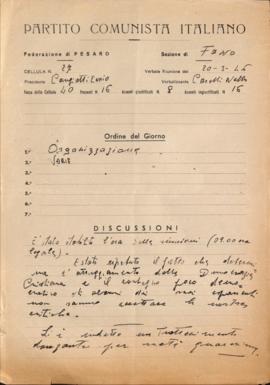 PARTITO COMUNISTA ITALIANO
Federazione di PESARO Sezione di FANO
CELLULA N. 27 Verbale Riunione del 20-3-46
Presidente Verbalizzante Caselli Nello
Forza della Cellula 40 Presenti N. 16 Assenti giustificati N. 8 Assenti ingiustificati N. 16
Ordine del Giorno
1.° Organizzazione
2.° Varie
3.°
4.°
5.°
6.°
7.°
DISCUSSIONI
È stata stabilita l'ora delle riunioni
legale).
È stato ripetuto il fatto che
l'atteggiamento della Democrazia
Cristiana e il contegno poco
di alcuni dei suoi
non sanno accettare le nostre
critiche.
Si è indetto un Trattenimento
danzante per